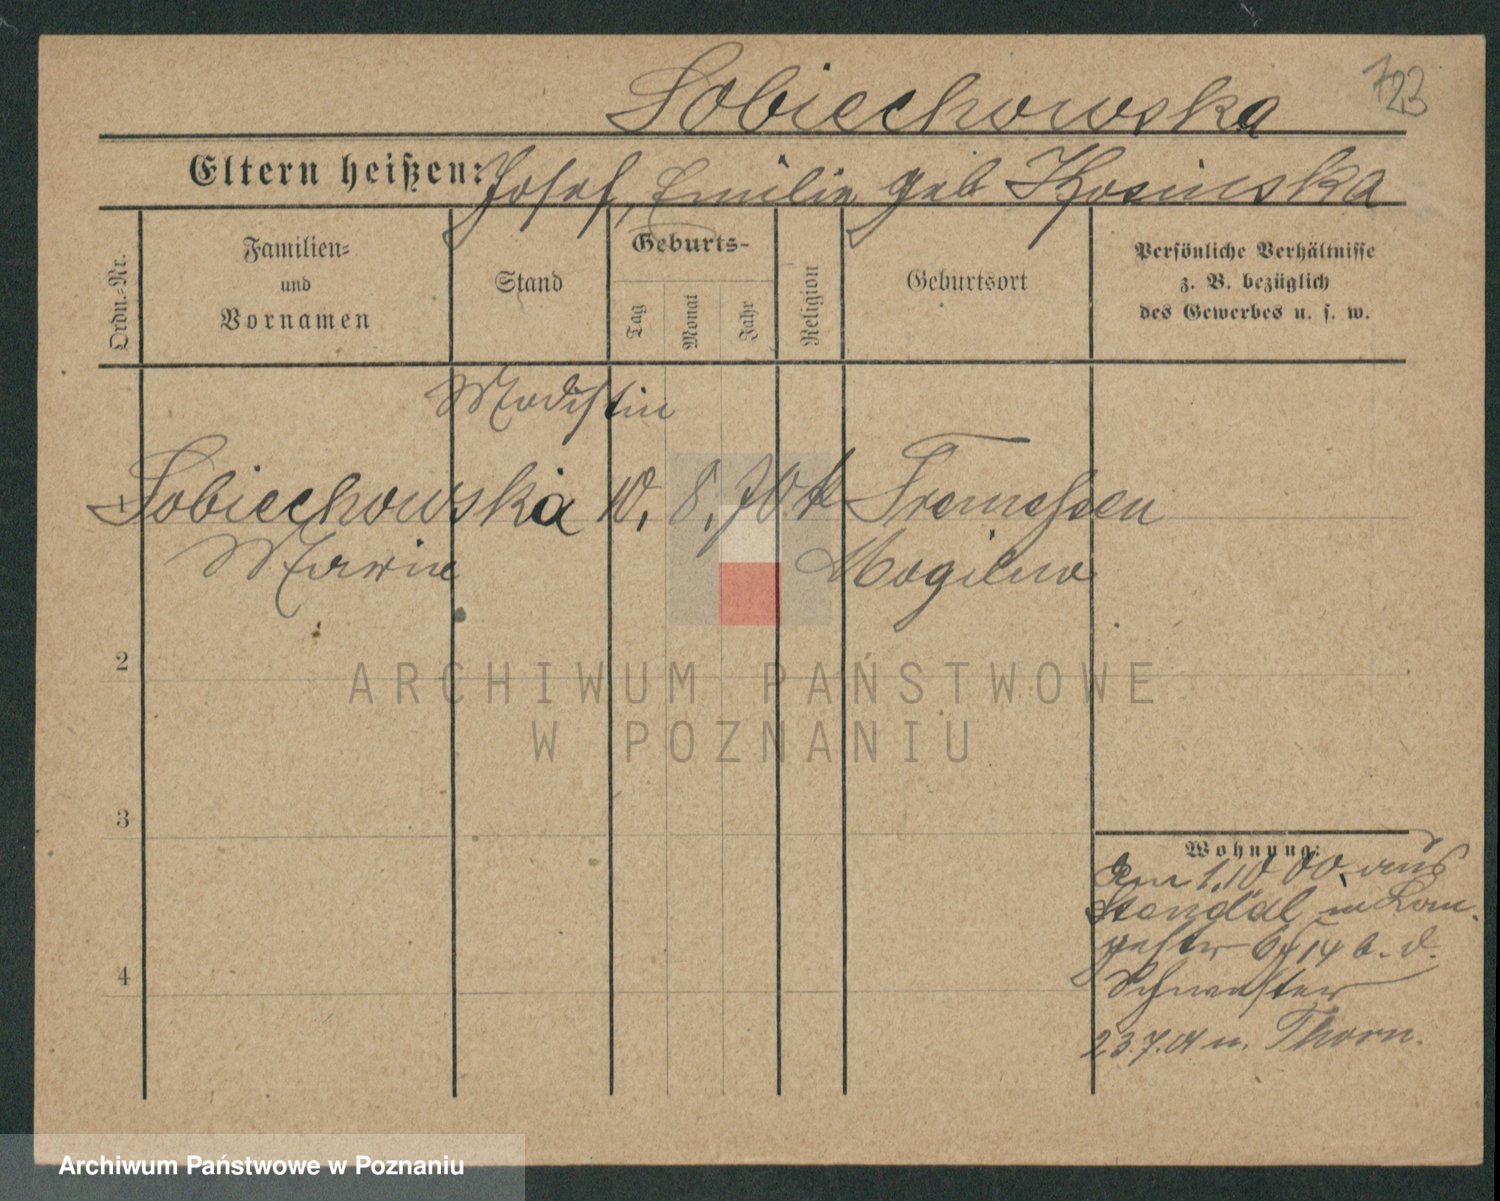 723
Sobiechowska
Eltern heißen: Josef, Emilie geb Kosinska
Ordn.-Nr.
Familien-
und
Vornamen
Stand
Geburts-
Tag
Monat
Jahr
Religion
Geburtsort
Persönliche Verhältnisse
z. B. bezüglich
des Gewerbes u. s. w.
Modistin
1 Sobiechowska 10. 8. 70. k Tremessen
Marie Mogilno
2
ARCHIWUM PAŃSTWOWE
W POZNANIU
3
4
Wohnung:
Am 1.10 00. aus
Stendal in
14 b. d.
Schwester
23.7.01 n. Thorn.
Archiwum Państwowe w Poznaniu